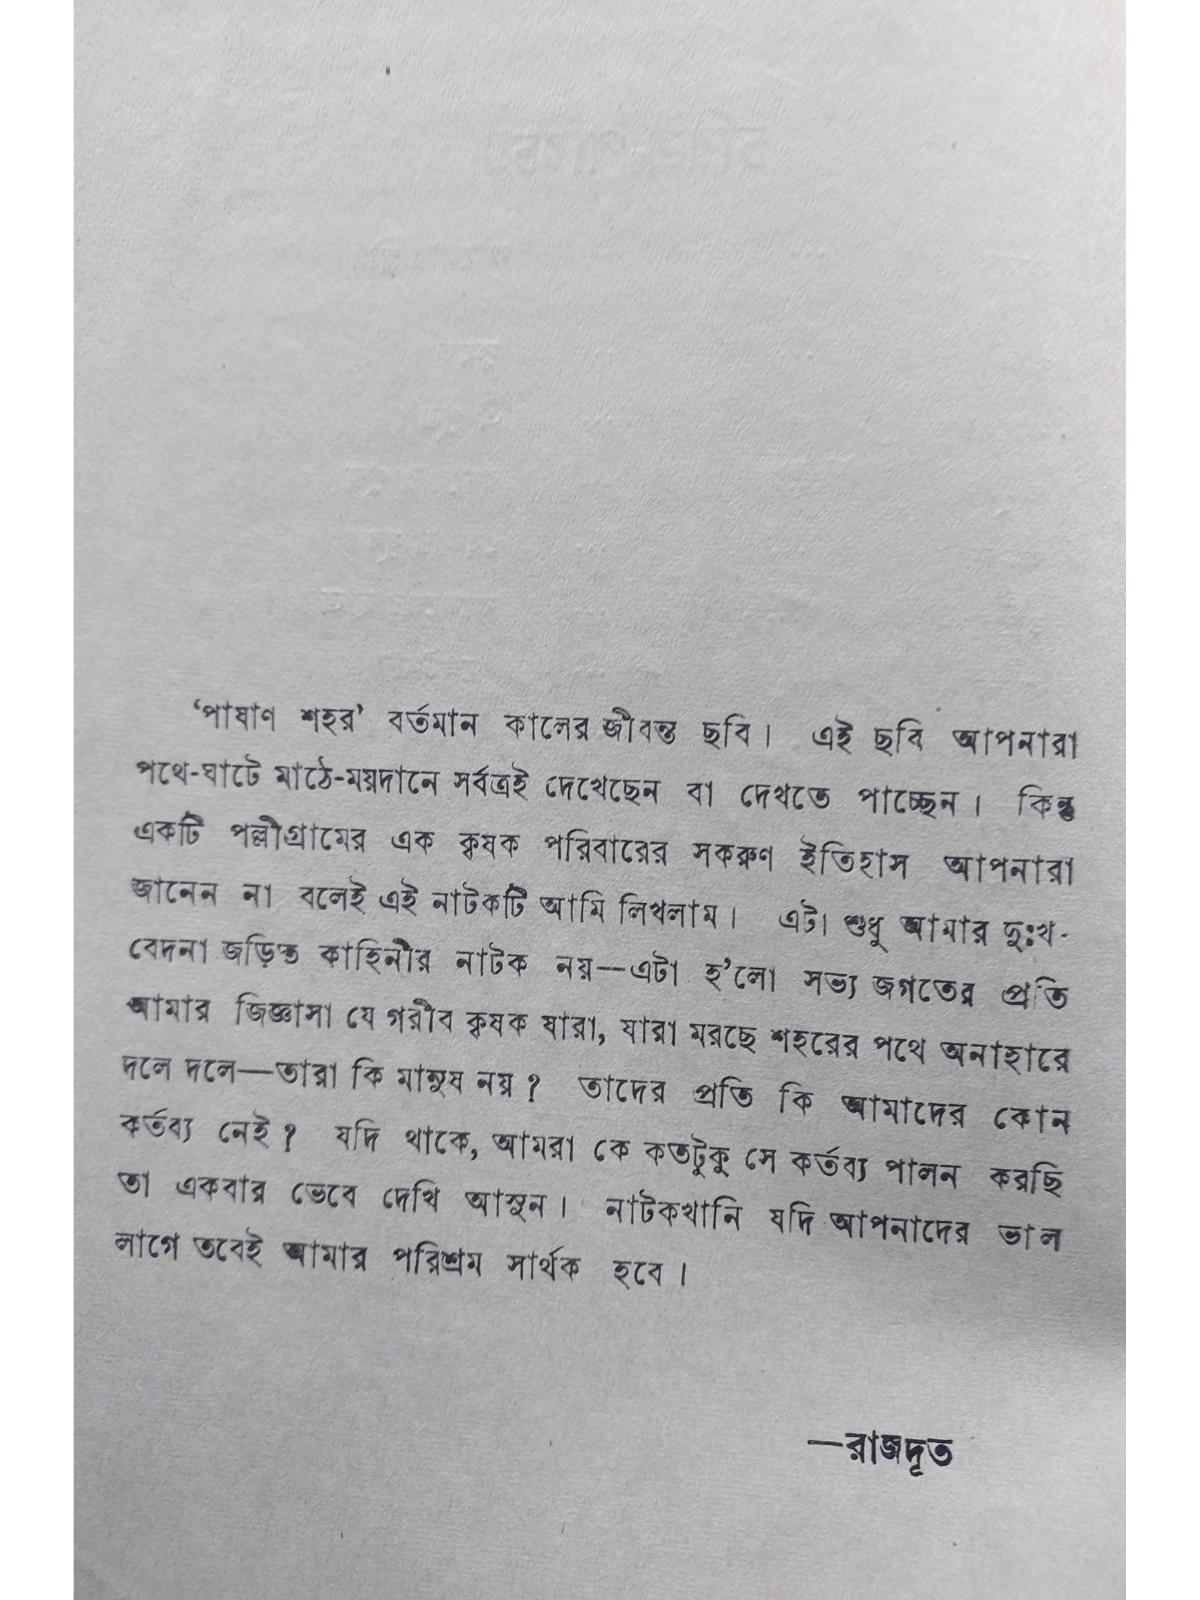 ‘পাষাণ শহর’ বর্তমান কালের জীবন্ত ছবি। এই ছবি আপনারা
পথে-ঘাটে মাঠে-ময়দানে সর্বত্রই দেখেছেন বা দেখতে পাচ্ছেন। কিন্তু
একটি পল্লীগ্রামের এক কৃষক পরিবারের সকরুণ ইতিহাস আপনারা
জানেন না বলেই এই নাটকটি আমি লিখলাম। এটা শুধু আমার দুঃখ-
বেদনা জড়িত কাহিনীর নাটক নয়—এটা হ’লো সভ্য জগতের প্রতি
আমার জিজ্ঞাসা যে গরীব কৃষক যারা, যারা মরছে শহরের পথে অনাহারে
দলে দলে—তারা কি মানুষ নয়? তাদের প্রতি কি আমাদের কোন
কর্তব্য নেই? যদি থাকে, আমরা কে কতটুকু সে কর্তব্য পালন করছি
তা একবার ভেবে দেখি আসুন। নাটকখানি যদি আপনাদের ভাল
লাগে তবেই আমার পরিশ্রম সার্থক হবে।
—রাজদূত